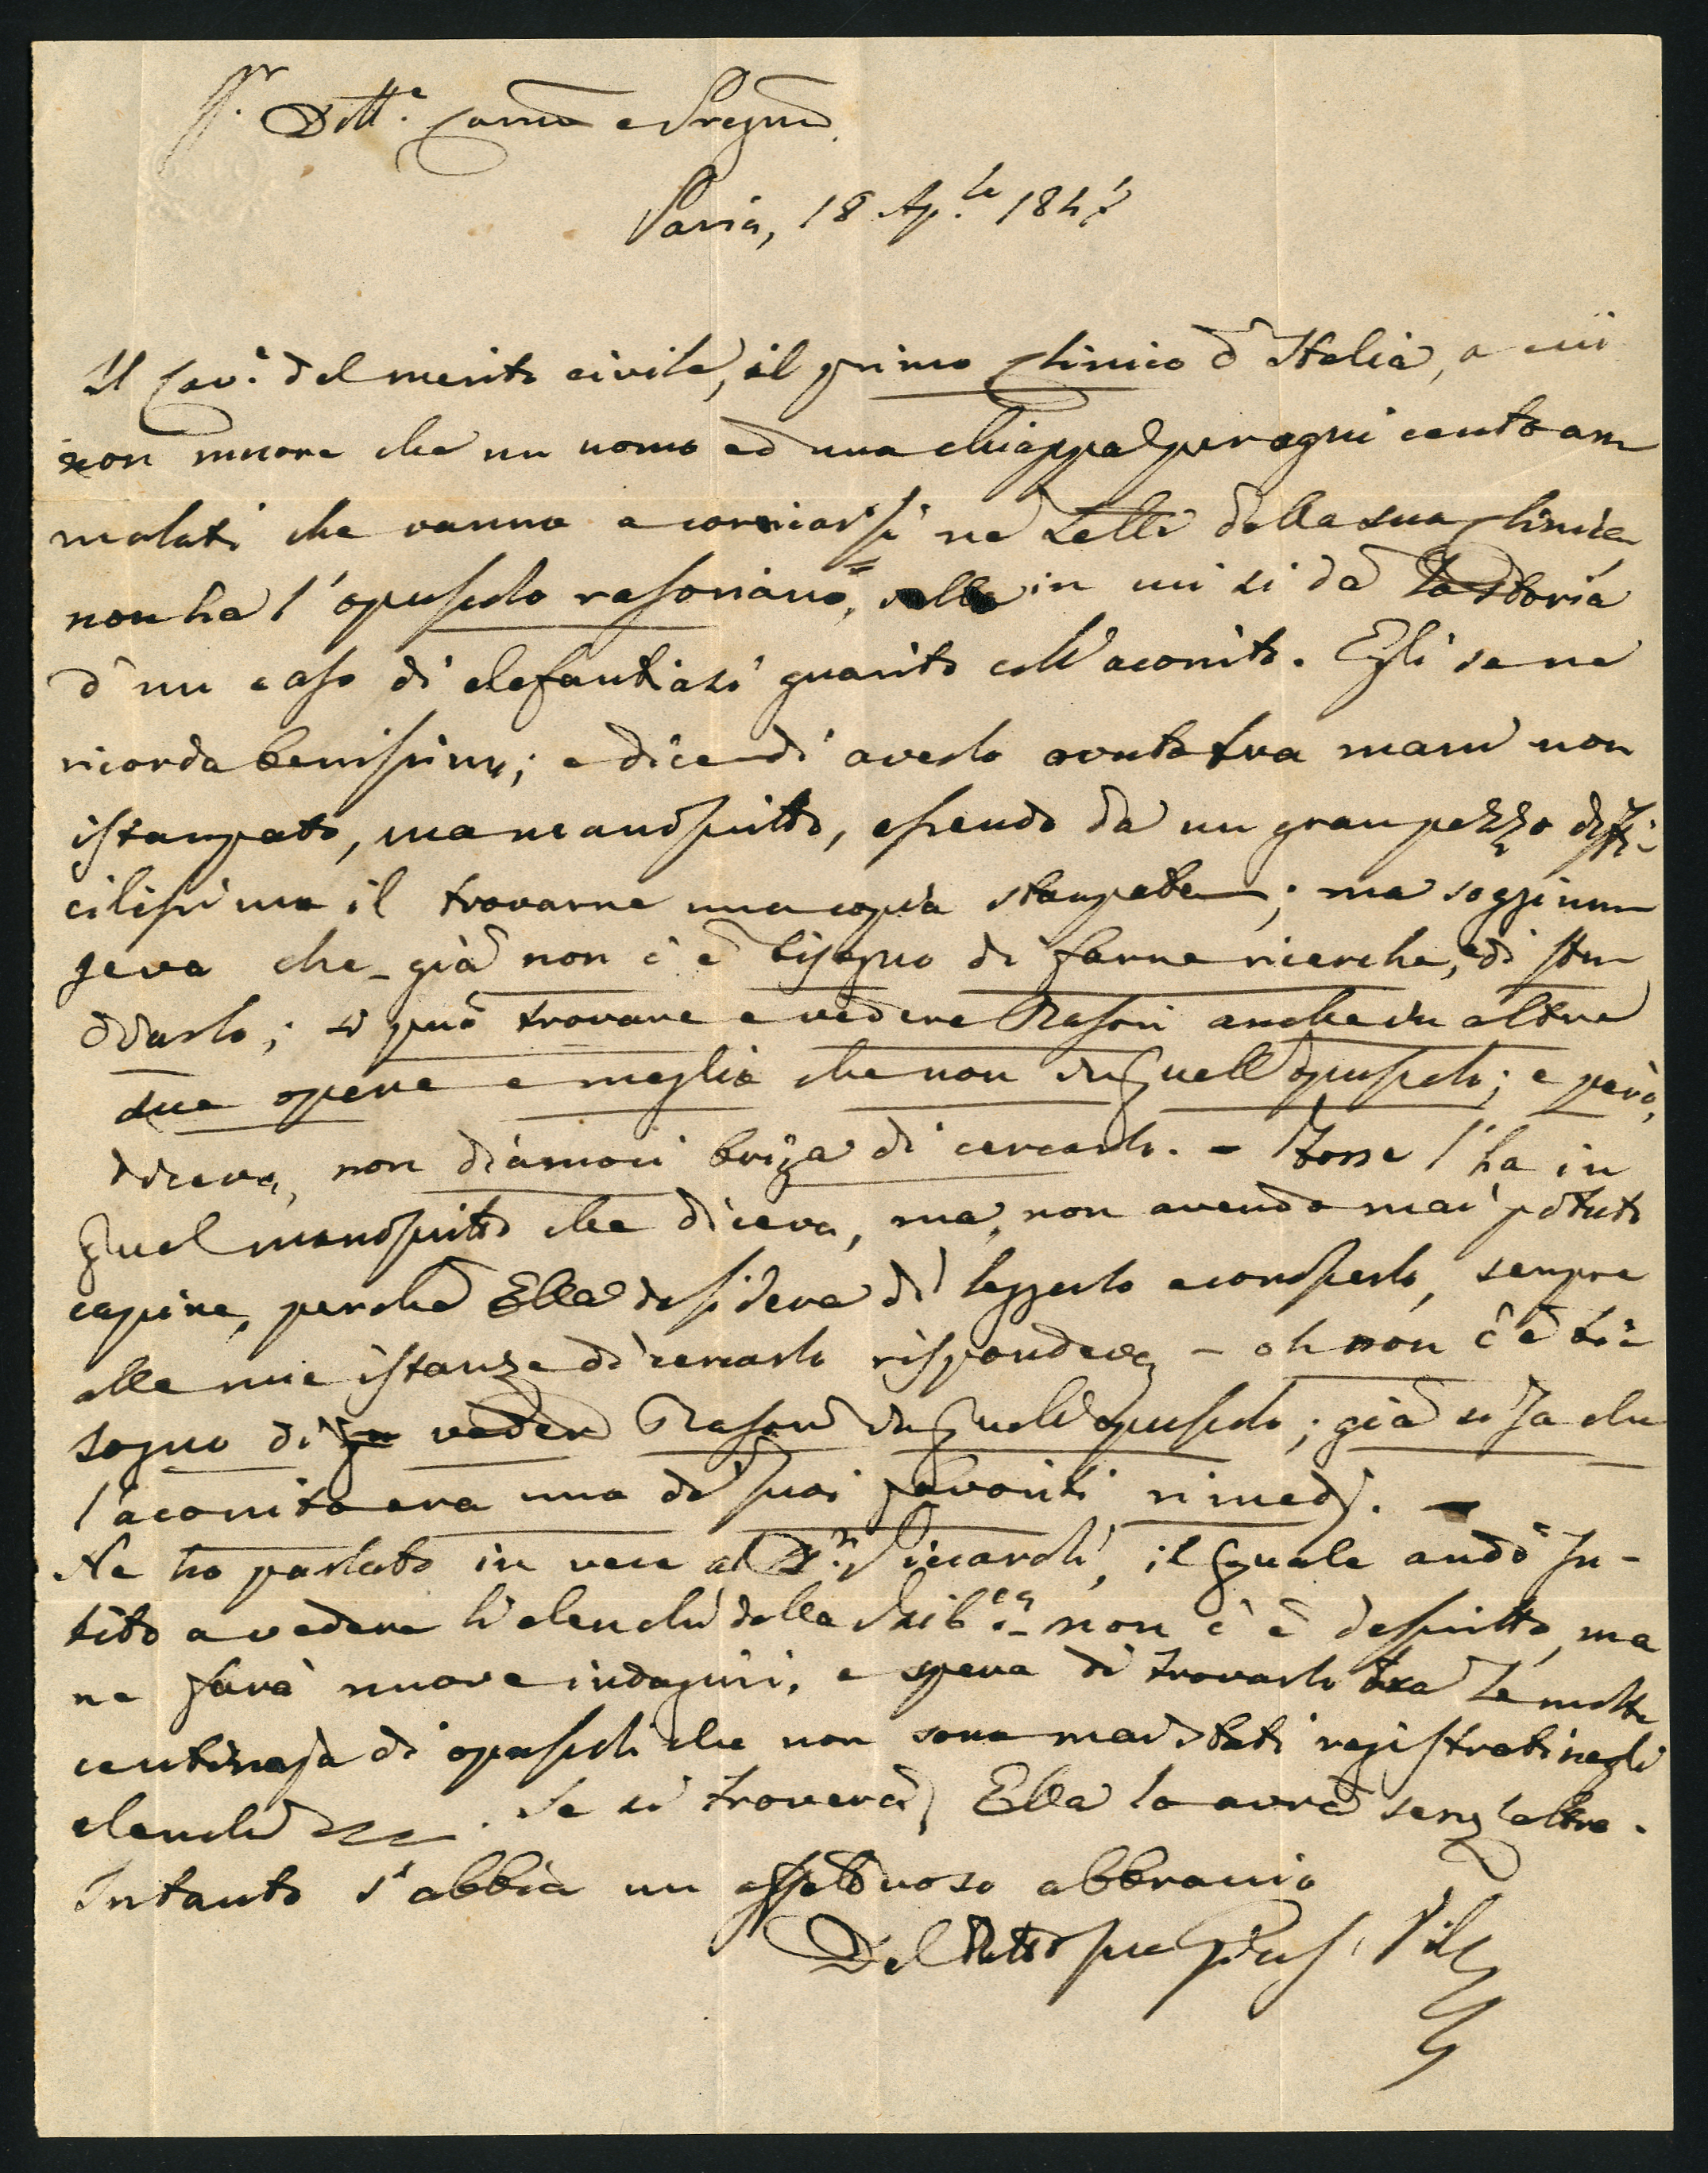 Dott.e Carmo e Pregmo
Pavia, 18 Ap.le 1847
Il Cav.e del merito civile, il primo Clinico d'Italia, a cui
non muore che un uomo ed una chiappa per ogni cento am
malati che vanno a coricarsi ne Letti della sua Clinica
non ha l'opuscolo rasoriano, in cui si dà la storia
d'un caso di elefantiasi guarito coll'aconito. Egli se ne
ricorda benissimo; e dice di averlo avuto tra mani non
istampato, ma manoscritto, essendo da un gran pezzo diffi-
cilissimo il trovarne una copia stampata; ma soggiun
geva che - già non c'è bisogno di farne ricerche, e di stu
diarlo; si può trovare e vedere Rasori anche in altre
sue opere e meglio che non in quell'opuscolo; e però,
diceva, non diamoci briga di cercarlo. - Forse l'ha in
quel manoscritto che diceva, ma, non avendo mai potuto
capire, perchè Ella desidera di leggerlo e conoscerlo, sempre
alle mie istanze di cercarlo rispondeva - oh non c'è bi-
sogno di veder Rasori in quell'opuscolo; già si sa che
l'aconito era uno de' suoi favoriti rimedj. -
Ne ho parlato in vece al D.r Piccaroli, il quale andò su-
bito a vedere li elenchi della Bib.ca - non c'è descritto, ma
ne farà nuove indagini, e spera di trovarlo tra le molte
centinaja di opuscoli che non sono mai stati registrati negli
elenchi. Se si troverà, Ella lo avrà senz'altro.
Intanto s'abbia un affettuoso abbraccio
Del tutto suo